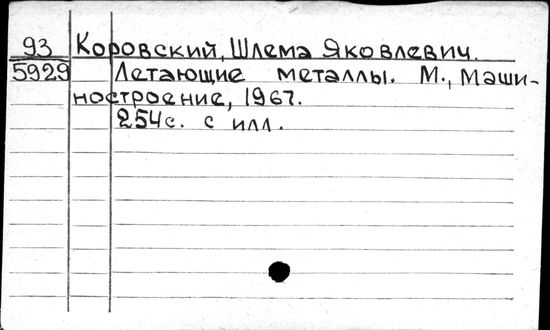 93 Коровский, Шлема Яковлевич.
5929 Летающие металлы. М., Маши-
ностроение, 1967.
254с. с илл.